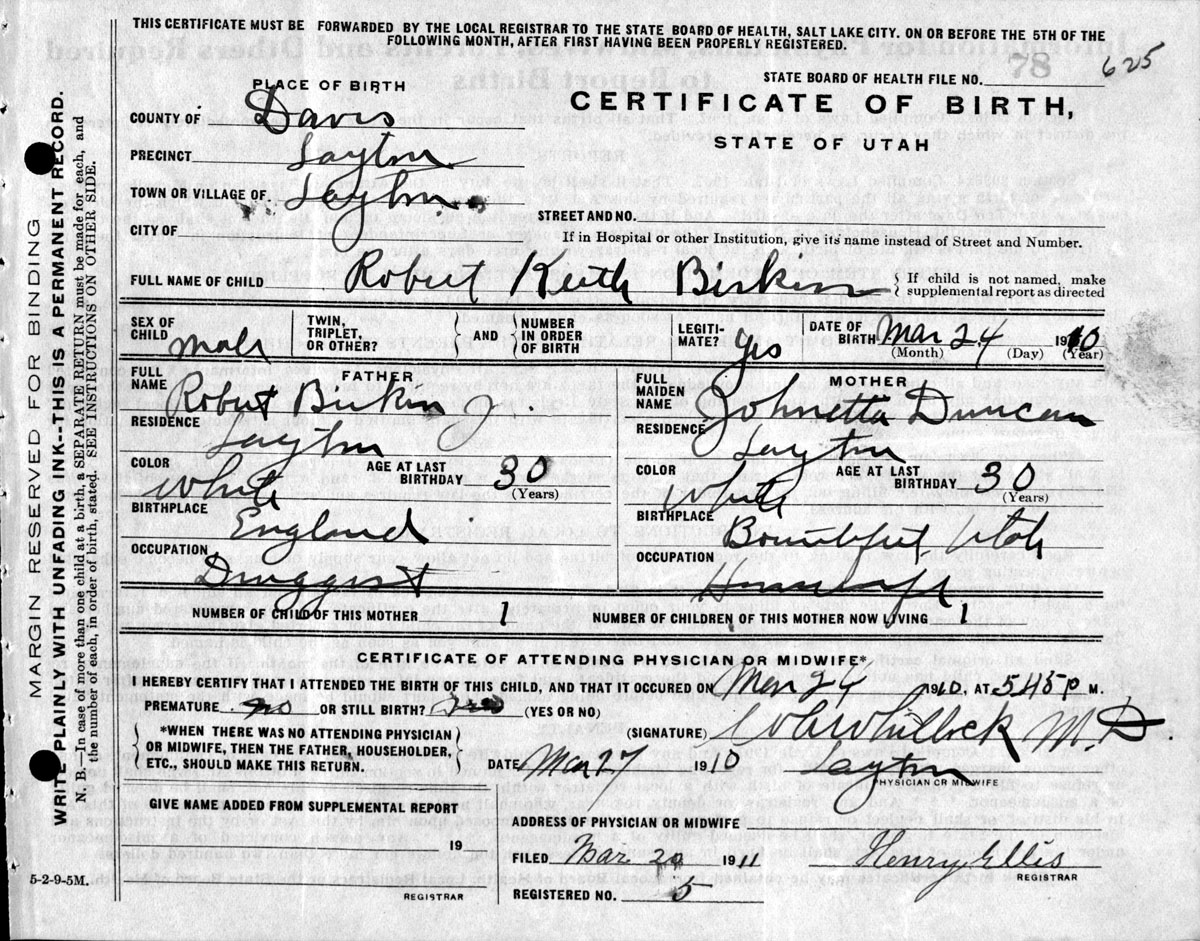 THIS CERTIFICATE MUST BE FORWARDED BY THE LOCAL REGISTRAR TO THE STATE BOARD OF HEALTH, SALT LAKE CITY. ON OR BEFORE THE 5TH OF THE
FOLLOWING MONTH, AFTER FIRST HAVING BEEN PROPERLY REGISTERED.
78 625
STATE BOARD OF HEALTH FILE NO.
PLACE OF BIRTH
CERTIFICATE OF BIRTH,
STATE OF UTAH
COUNTY OF Davis
PRECINCT Layton
TOWN OR VILLAGE OF Layton
STREET AND NO.
CITY OF
If in Hospital or other Institution, give its name instead of Street and Number.
FULL NAME OF CHILD Robert Keith Birkin { If child is not named, make
supplemental report as directed
SEX OF CHILD male TWIN, TRIPLET, OR OTHER? } AND { NUMBER IN ORDER OF BIRTH LEGITI-MATE? yes DATE OF BIRTH Mar 24 1910
(Month) (Day) (Year)
FATHER
FULL NAME Robert Birkin Jr.
RESIDENCE Layton
COLOR White AGE AT LAST BIRTHDAY 30 (Years)
BIRTHPLACE England
OCCUPATION Druggist
MOTHER
FULL MAIDEN NAME Johnetta Duncan
RESIDENCE Layton
COLOR White AGE AT LAST BIRTHDAY 30 (Years)
BIRTHPLACE Bountiful, Utah
OCCUPATION Housewife
NUMBER OF CHILD OF THIS MOTHER 1 NUMBER OF CHILDREN OF THIS MOTHER NOW LIVING 1
CERTIFICATE OF ATTENDING PHYSICIAN OR MIDWIFE*
I HEREBY CERTIFY THAT I ATTENDED THE BIRTH OF THIS CHILD, AND THAT IT OCCURED ON Mar 24 1910, AT 545 P M.
PREMATURE no OR STILL BIRTH? (YES OR NO)
*WHEN THERE WAS NO ATTENDING PHYSICIAN
OR MIDWIFE, THEN THE FATHER, HOUSEHOLDER,
ETC., SHOULD MAKE THIS RETURN.
(SIGNATURE) M.D
DATE Mar 27 1910 Layton
PHYSICIAN OR MIDWIFE
GIVE NAME ADDED FROM SUPPLEMENTAL REPORT
19
REGISTRAR
ADDRESS OF PHYSICIAN OR MIDWIFE
FILED Mar 20 1911 Henry Ellis
REGISTRAR
REGISTERED NO. 5
5-2-9-5M.
MARGIN RESERVED FOR BINDING
WRITE PLAINLY WITH UNFADING INK--THIS A PERMANENT RECORD.
N. B.—In case of more than one child at a birth, a SEPARATE RETURN must be made for each, and
the number of each, in order of birth, stated. SEE INSTRUCTIONS ON OTHER SIDE.